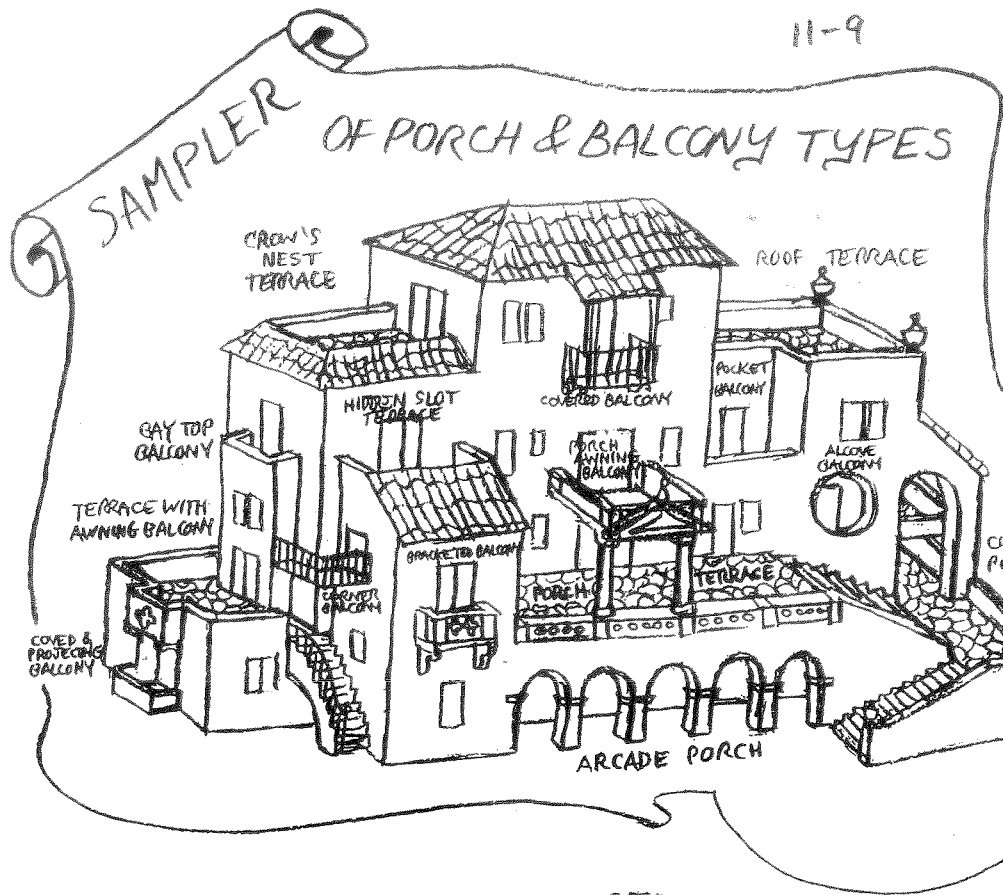 11-9
SAMPLER
OF PORCH & BALCONY TYPES
CROW'S
NEST
TERRACE
ROOF TERRACE
POCKET
BALCONY
HIDDEN SLOT
TERRACE
COVERED BALCONY
BAY TOP
BALCONY
PORCH
AWNING
BALCONY
ALCOVE
BALCONY
TERRACE WITH
AWNING BALCONY
BRACKETED BALCONY
CORNER
BALCONY
PORCH
TERRACE
COVED &
PROJECTING
BALCONY
ARCADE PORCH